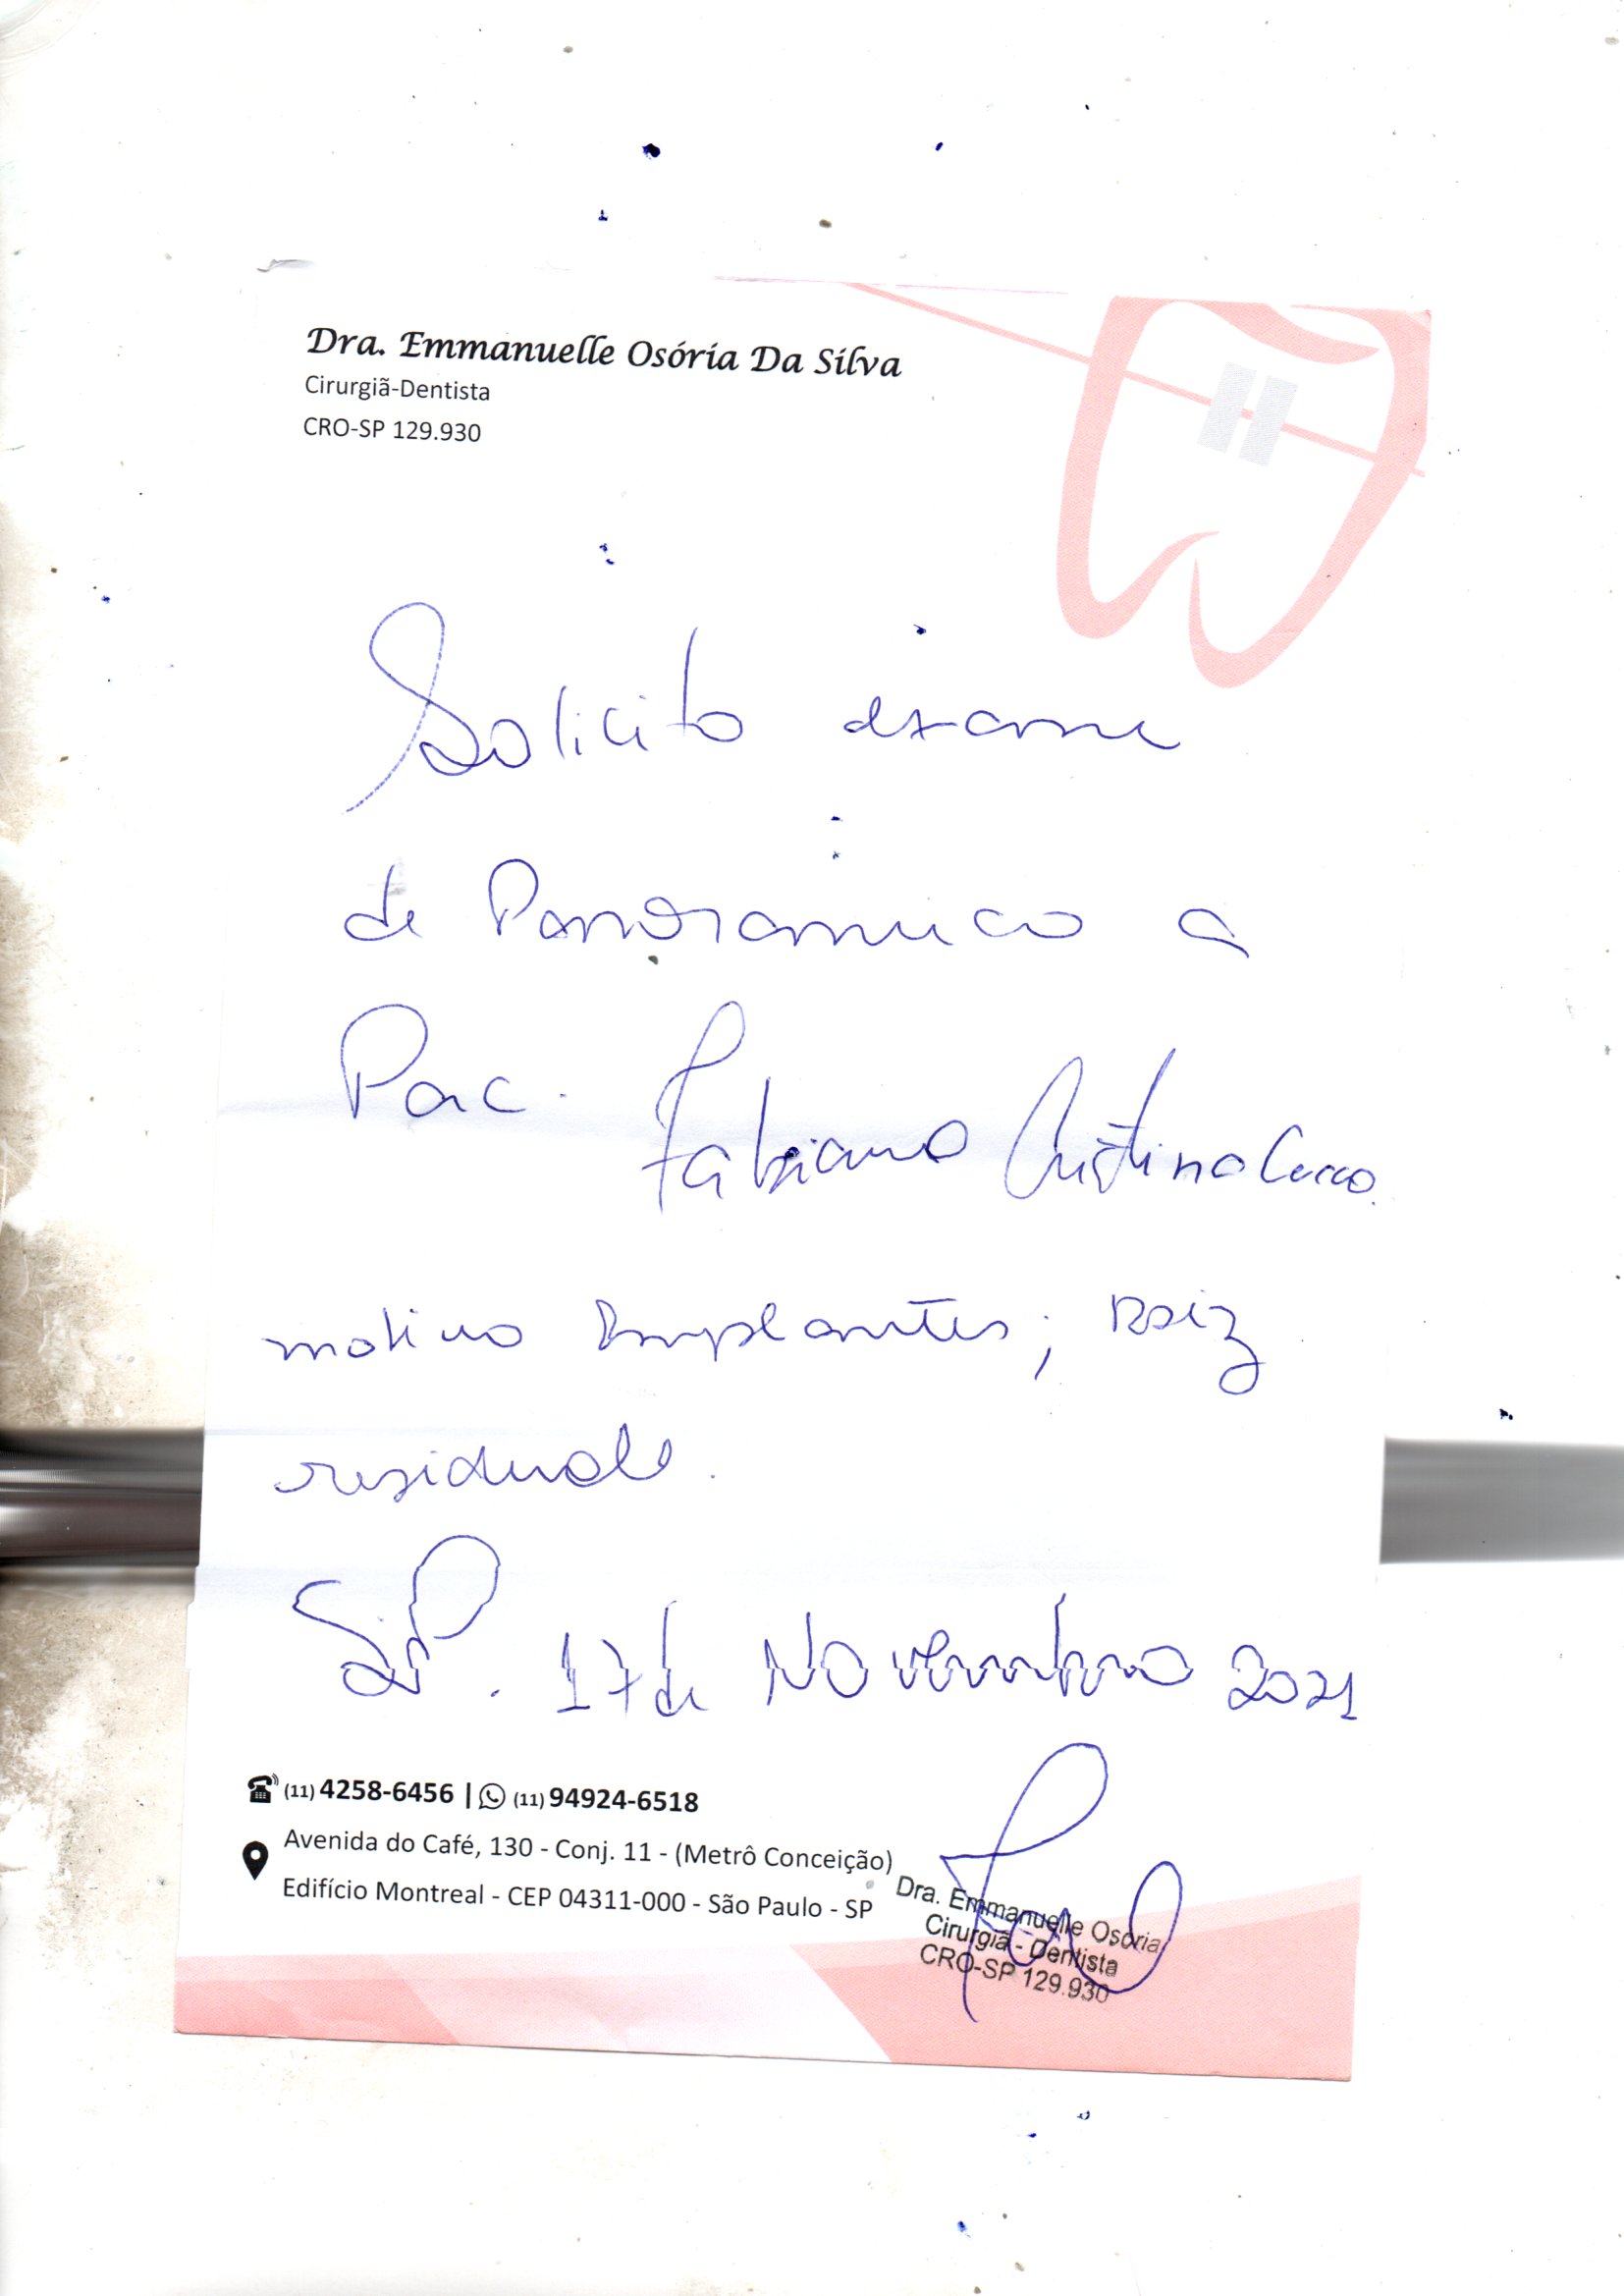 Dra. Emmanuelle Osória Da Silva
Cirurgiã-Dentista
CRO-SP 129.930
Solicito exame
de Panorâmico a
Pac. Fabiana Cristina
motivo Implantes; Raiz
residual.
SP. 17 de Novembro 2021
(11) 4258-6456 | (11) 94924-6518
Avenida do Café, 130 - Conj. 11 - (Metrô Conceição)
Edifício Montreal - CEP 04311-000 - São Paulo - SP
Dra. Emmanuelle Osória
Cirurgiã - Dentista
CRO-SP 129.930